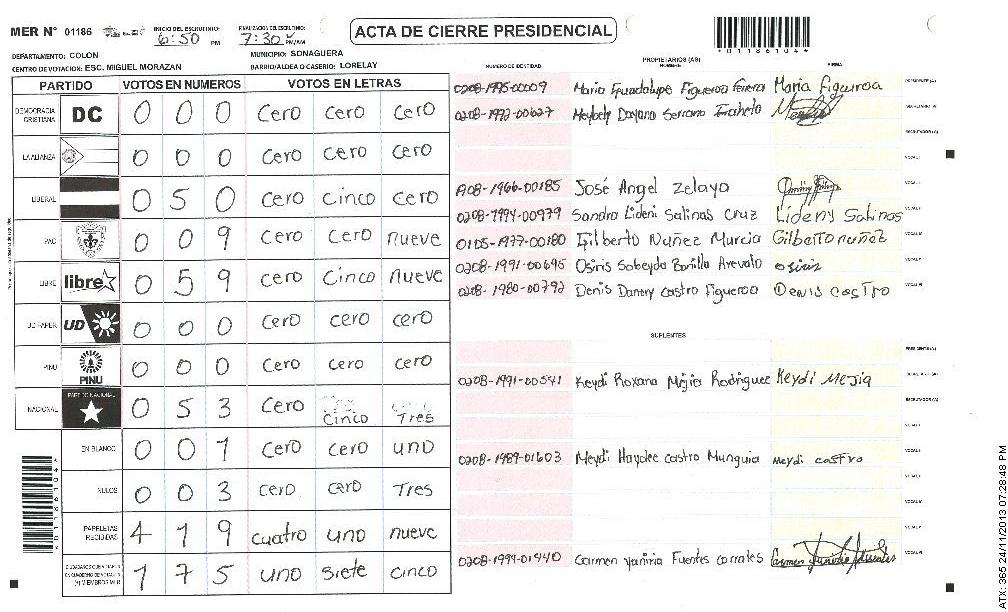 MER N° 01186
INICIO DEL ESCRUTINIO: 6:50 PM
FINALIZACION DEL ESCRUTINIO: 7:30 PM/AM
ACTA DE CIERRE PRESIDENCIAL
*01186104*
DEPARTAMENTO: COLON
MUNICIPIO: SONAGUERA
CENTRO DE VOTACION: ESC. MIGUEL MORAZAN
BARRIO/ALDEA O CASERIO: LORELAY
PARTIDO VOTOS EN NUMEROS VOTOS EN LETRAS
DEMOCRACIA CRISTIANA DC 0 0 0 Cero Cero Cero
LA ALIANZA 0 0 0 Cero Cero Cero
LIBERAL 0 5 0 Cero Cinco Cero
PAC 0 0 9 Cero Cero nueve
LIBRE libre 0 5 9 Cero Cinco nueve
UD FAPER UD 0 0 0 Cero cero cero
PINU PINU 0 0 0 Cero Cero cero
NACIONAL PARTIDO NACIONAL 0 5 3 Cero Cinco Tres
EN BLANCO 0 0 1 Cero Cero uno
NULOS 0 0 3 cero cero Tres
PAPELETAS RECIBIDAS 4 1 9 cuatro uno nueve
1 7 5 uno siete cinco
PROPIETARIOS (AS)
NUMERO DE IDENTIDAD NOMBRE FIRMA
0208-1995-00009 Maria Guadalupe Figueroa Maria Figueroa PRESIDENTE (A)
0208-1992-00627 Dayana Serrano SECRETARIO (A)
ESCRUTADOR (A)
VOCAL I
1966-00185 José Angel Zelaya
0208-1994-00979 Sandra Lideni Salinas Cruz Lideny Salinas
1977-00180 Gilberto Nuñez Murcia Gilberto nuñez
0208-1991-00695 Osiris Sobeyda Bonilla Arevalo osiris
0208-1980-00792 Denis Danery Castro Figueroa Denis castro
SUPLENTES
PRESIDENTE (A)
0208-1991-00541 Keydi Roxana Mejia Rodriguez Keydi Mejia
ESCRUTADOR (A)
0208-1989-01603 Meydi Haydee Castro Munguia Meydi castro
0208-1994-01440 Carmen Yaniria Fuentes corrales
*01186104*
ATX: 365 24/11/2013 07:28:48 PM